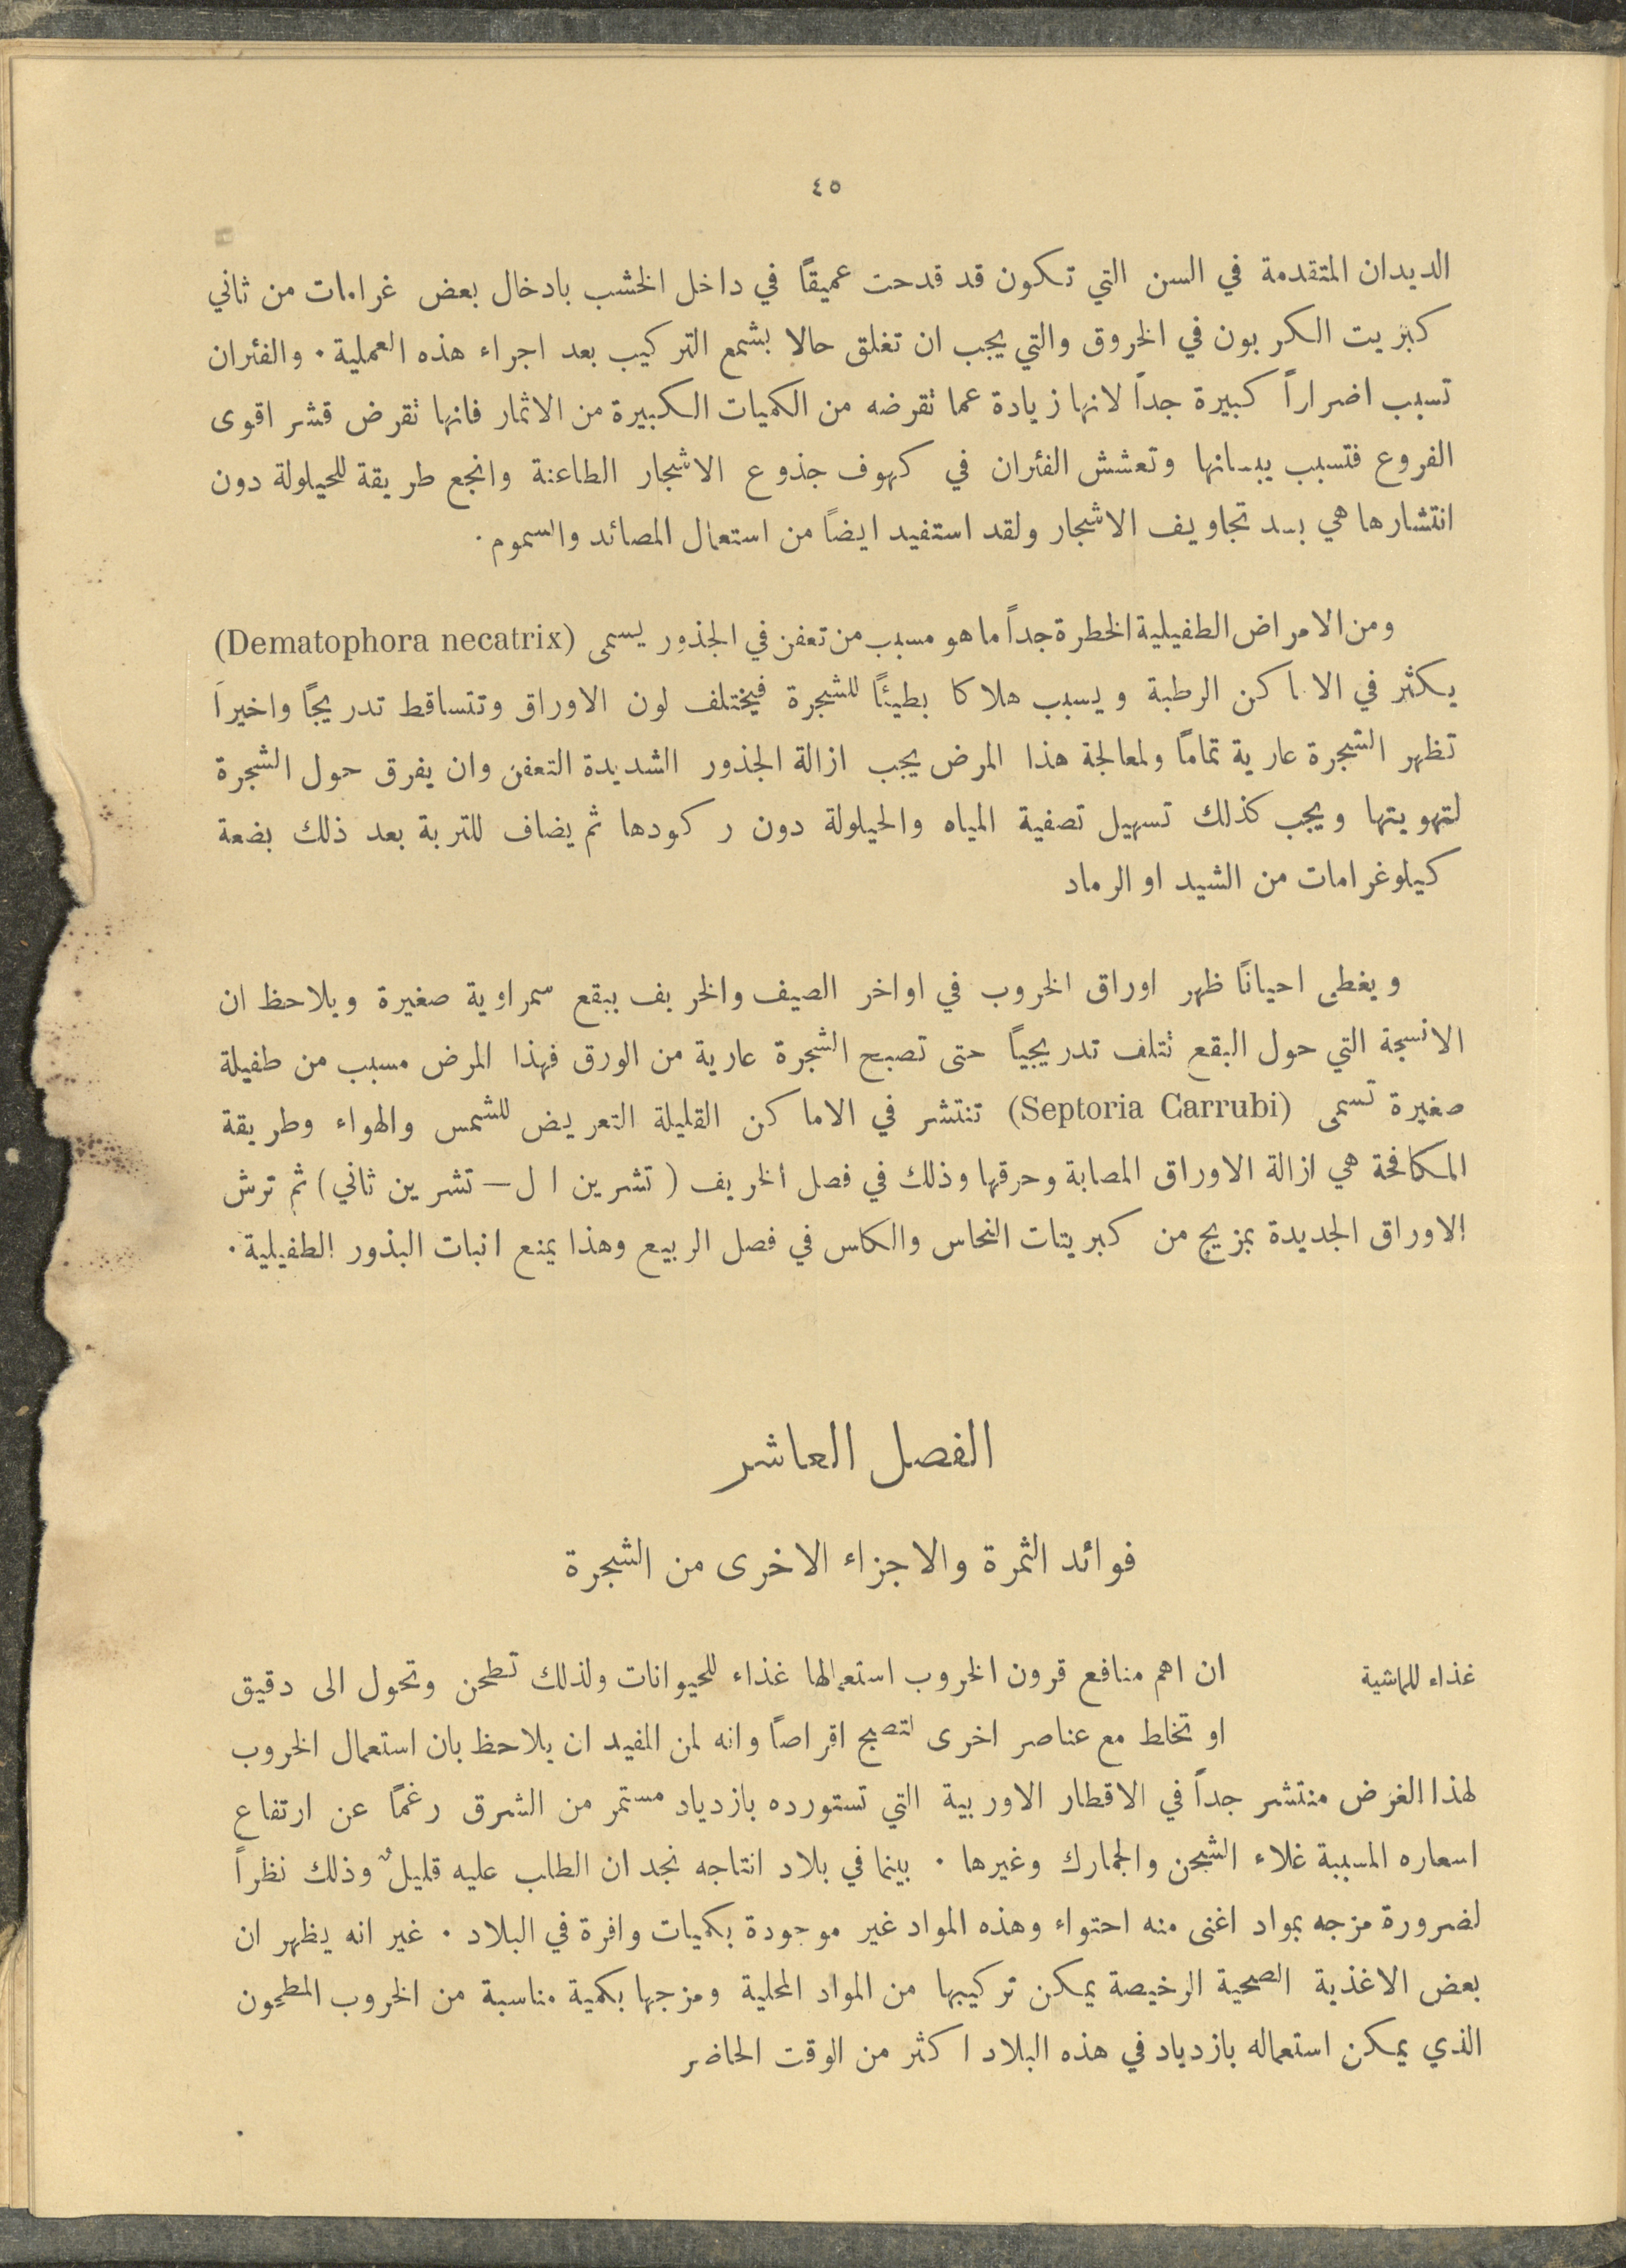 ٤٥
الديدان المتقدمة في السن التي تكون قد قدحت عميقاً في داخل الخشب بادخال بعض غرامات من ثاني
كبريت الكربون في الخروق والتي يجب ان تغلق حالا بشمع التركيب بعد اجراء هذه العملية . والفئران
تسبب اضراراً كبيرة جداً لانها زيادة عما تقرضه من الكميات الكبيرة من الاثمار فانها تقرض قشر اقوى
الفروع فتسبب يبسانها وتعشش الفئران في كهوف جذوع الاشجار الطاعنة وانجع طريقة للحيلولة دون
انتشارها هي بسد تجاويف الاشجار ولقد استفيد ايضاً من استعمال المصائد والسموم .
ومن الامراض الطفيلية الخطرة جداً ما هو مسبب من تعفن في الجذور يسمى (Dematophora necatrix)
يكثر في الاماكن الرطبة ويسبب هلاكا بطيئاً للشجرة فيختلف لون الاوراق وتتساقط تدريجاً واخيراً
تظهر الشجرة عارية تماماً ولمعالجة هذا المرض يجب ازالة الجذور الشديدة التعفن وان يفرق حول الشجرة
لتهويتها ويجب كذلك تسهيل تصفية المياه والحيلولة دون ركودها ثم يضاف للتربة بعد ذلك بضعة
كيلوغرامات من الشيد او الرماد
ويغطى احياناً ظهر اوراق الخروب في اواخر الصيف والخريف ببقع سمراوية صغيرة ويلاحظ ان
الانسجة التي حول البقع تتلف تدريجياً حتى تصبح الشجرة عارية من الورق فهذا المرض مسبب من طفيلة
صغيرة تسمى (Septoria Carrubi) تنتشر في الاماكن القليلة التعريض للشمس والهواء وطريقة
المكافحة هي ازالة الاوراق المصابة وحرقها وذلك في فصل الخريف ( تشرين ا ل — تشرين ثاني ) ثم ترش
الاوراق الجديدة بمزيج من كبريتات النحاس والكلس في فصل الربيع وهذا يمنع انبات البذور الطفيلية .
الفصل العاشر
فوائد الثمرة والاجزاء الاخرى من الشجرة
غذاء للماشية
ان اهم منافع قرون الخروب استعمالها غذاء للحيوانات ولذلك تطحن وتحول الى دقيق
او تخلط مع عناصر اخرى لتصبح اقراصاً وانه لمن المفيد ان يلاحظ بان استعمال الخروب
لهذا الغرض منتشر جداً في الاقطار الاوربية التي تستورده بازدياد مستمر من الشرق رغماً عن ارتفاع
اسعاره المسببة غلاء الشحن والجمارك وغيرها . بينما في بلاد انتاجه نجد ان الطلب عليه قليلٌ وذلك نظراً
لضرورة مزجه بمواد اغنى منه احتواء وهذه المواد غير موجودة بكميات وافرة في البلاد . غير انه يظهر ان
بعض الاغذية الصحية الرخيصة يمكن تركيبها من المواد المحلية ومزجها بكمية مناسبة من الخروب المطحون
الذي يمكن استعماله بازدياد في هذه البلاد اكثر من الوقت الحاضر